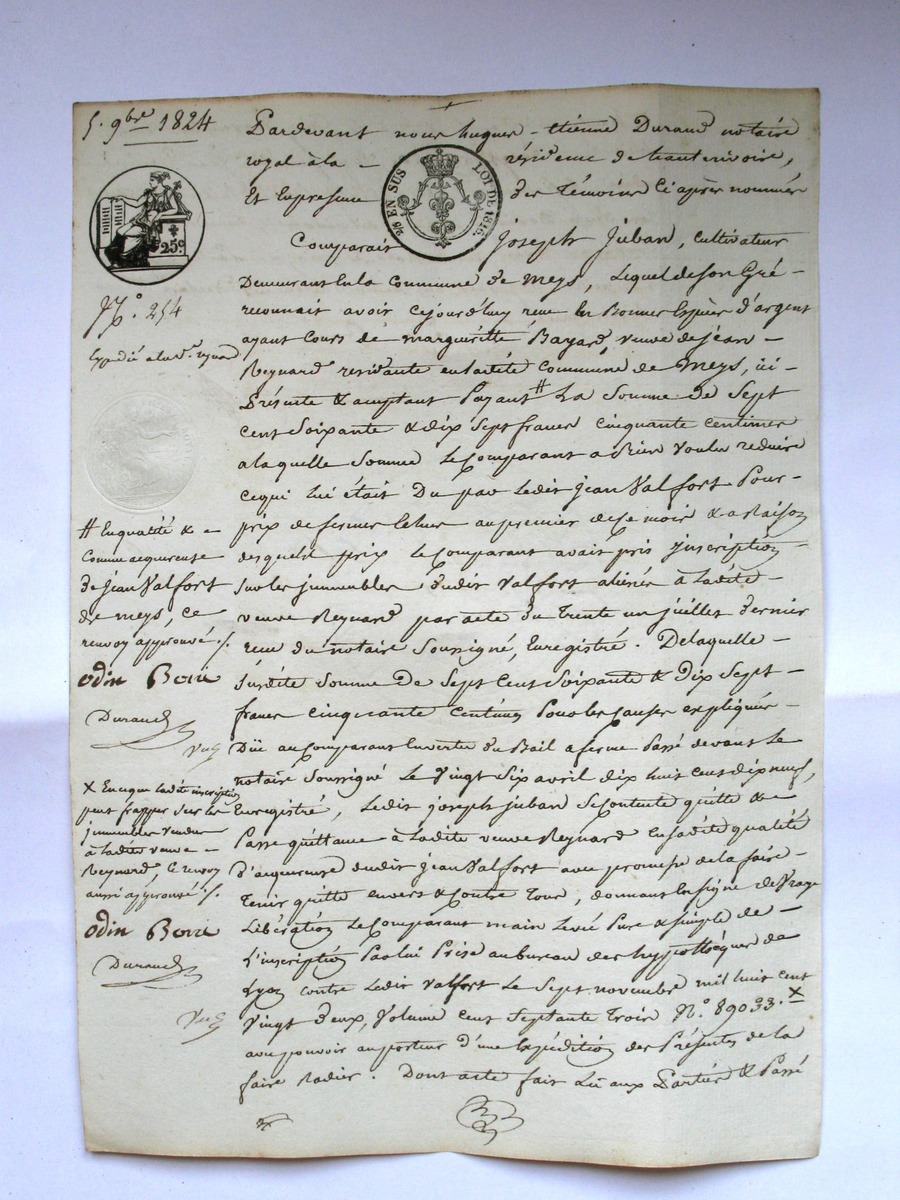 5. 9bre 1824
25c
N.° 254
Expédié a la ve. reynard
2/5 EN SUS LOI DE 1816.
Pardevant nous hugues - Etienne Durand notaire
royal à la - résidence de hauterivoire,
Et En presence des Témoins Ci après nommés
Comparait Joseph Juban, Cultivateur
Demeurant En la Commune de Meys, Lequel de Son Gré -
reconnait avoir Cejourd'huy reçu En Bonnes Espèces d'argent
ayant Cours de marguéritte Bayard, veuve de jean -
Reynard residante en ladite Commune de Meys, ici -
Présente & acceptant Payant # La Somme de Sept
Cent Soixante & dix Sept francs Cinquante Centimes
a laquelle Somme le Comparant a Bien Voulu reduire
Ce qui lui était Du par Ledit jean Valfort Pour -
prix de fermes échus au premier de Ce mois & a Raison
desquels prix le Comparant avait pris inscription -
Sur les immeubles dudit Valfort aliénés à Ladite -
veuve Reynard par acte du Trente un juillet dernier
reçu du notaire Soussigné, Enregistré. De laquelle -
Susdite Somme De Sept Cent Soixante & Dix Sept -
francs Cinquante Centimes Pour les Causes expliquées -
Düe au Comparant En vertu du Bail a ferme Passé devant le
notaire Soussigné le Vingt Six avril dix huit Cent dix neuf,
Enregistré, Ledit joseph juban Se Contente quitte &
Passe quittance à Ladite veuve Reynard En Sa dite qualité
d'acquereuse dudit jean Valfort avec promesse de la faire -
Tenir quitte envers & Contre Tous, donnant En Signe de Vraye
Libération Le Comparant main Levée Pure & Simple de -
L'inscription Par lui Prise au bureau des hyppothèques de
Lyon contre Ledit Valfort le Sept novembre mil huit cent
Vingt deux, Volume Cent Septante Trois N.° 89033. X
avec pouvoir au porteur d'une Expédition des Présentes de la
faire Radier. Dont acte fait Lu aux Parties & Passé
# En qualité & -
Comme acquereuse
de jean Valfort
de meys, Ce
renvoy approuvé ./.
odin Borie
Durand
X En ce que Ladite inscription
peut frapper Sur les
immeubles Vendus
à Ladite veuve -
Reynard, Ce renvoy
aussi approuvé ./.
odin Borie
Durand